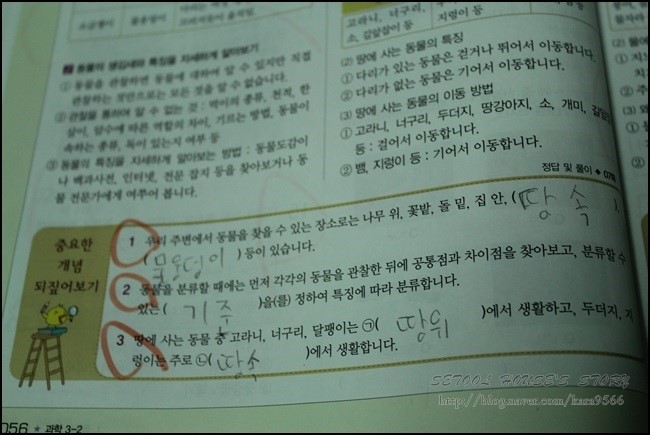 소금쟁이
물웅덩이
2 동물의 생김새와 특징을 자세하게 알아보기
① 동물을 관찰하면 동물에 대하여 알 수 있지만 직접
관찰하는 것만으로는 모든 것을 알 수 없습니다.
② 관찰을 통하여 알 수 없는 것 : 먹이의 종류, 천적, 한
살이, 암수에 따른 역할의 차이, 기르는 방법, 동물이
속하는 종류, 독이 있는지 여부 등
③ 동물의 특징을 자세하게 알아보는 방법 : 동물도감이
나 백과사전, 인터넷, 전문 잡지 등을 찾아보거나 동
물 전문가에게 여쭈어 봅니다.
고라니, 너구리,
소, 갈칼잎이 등
지렁이 등
(2) 땅에 사는 동물의 특징
① 다리가 있는 동물은 걷거나 뛰어서 이동합니다.
② 다리가 없는 동물은 기어서 이동합니다.
(3) 땅에 사는 동물의 이동 방법
① 고라니, 너구리, 두더지, 땅강아지, 소, 개미,
등 : 걸어서 이동합니다.
② 뱀, 지렁이 등 : 기어서 이동합니다.
정답 및 풀이 ◆ 07쪽
중요한
개념
되짚어보기
1 우리 주변에서 동물을 찾을 수 있는 장소로는 나무 위, 꽃밭, 돌 밑, 집 안, ( 땅 속 ),
( 물웅덩이 ) 등이 있습니다.
2 동물을 분류할 때에는 먼저 각각의 동물을 관찰한 뒤에 공통점과 차이점을 찾아보고, 분류할 수
있는 ( 기준 )을(를) 정하여 특징에 따라 분류합니다.
3 땅에 사는 동물 중 고라니, 너구리, 달팽이는 ㉠( 땅위 )에서 생활하고, 두더지, 지
렁이는 주로 ㉡( 땅속 )에서 생활합니다.
056 * 과학 3-2
SETOOL HOUSE'S STORY
http://blog.naver.com/kara9566